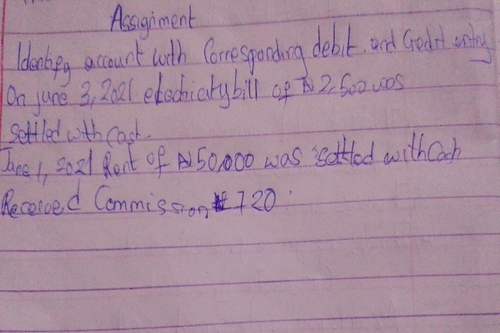 Assignment
Identify account with Corresponding debit and Credit entry
On june 3, 2021 electricity bill of ₦2,500 was
settled with cash.
June 1, 2021 Rent of ₦50,000 was settled with Cash
Received Commission ₦720